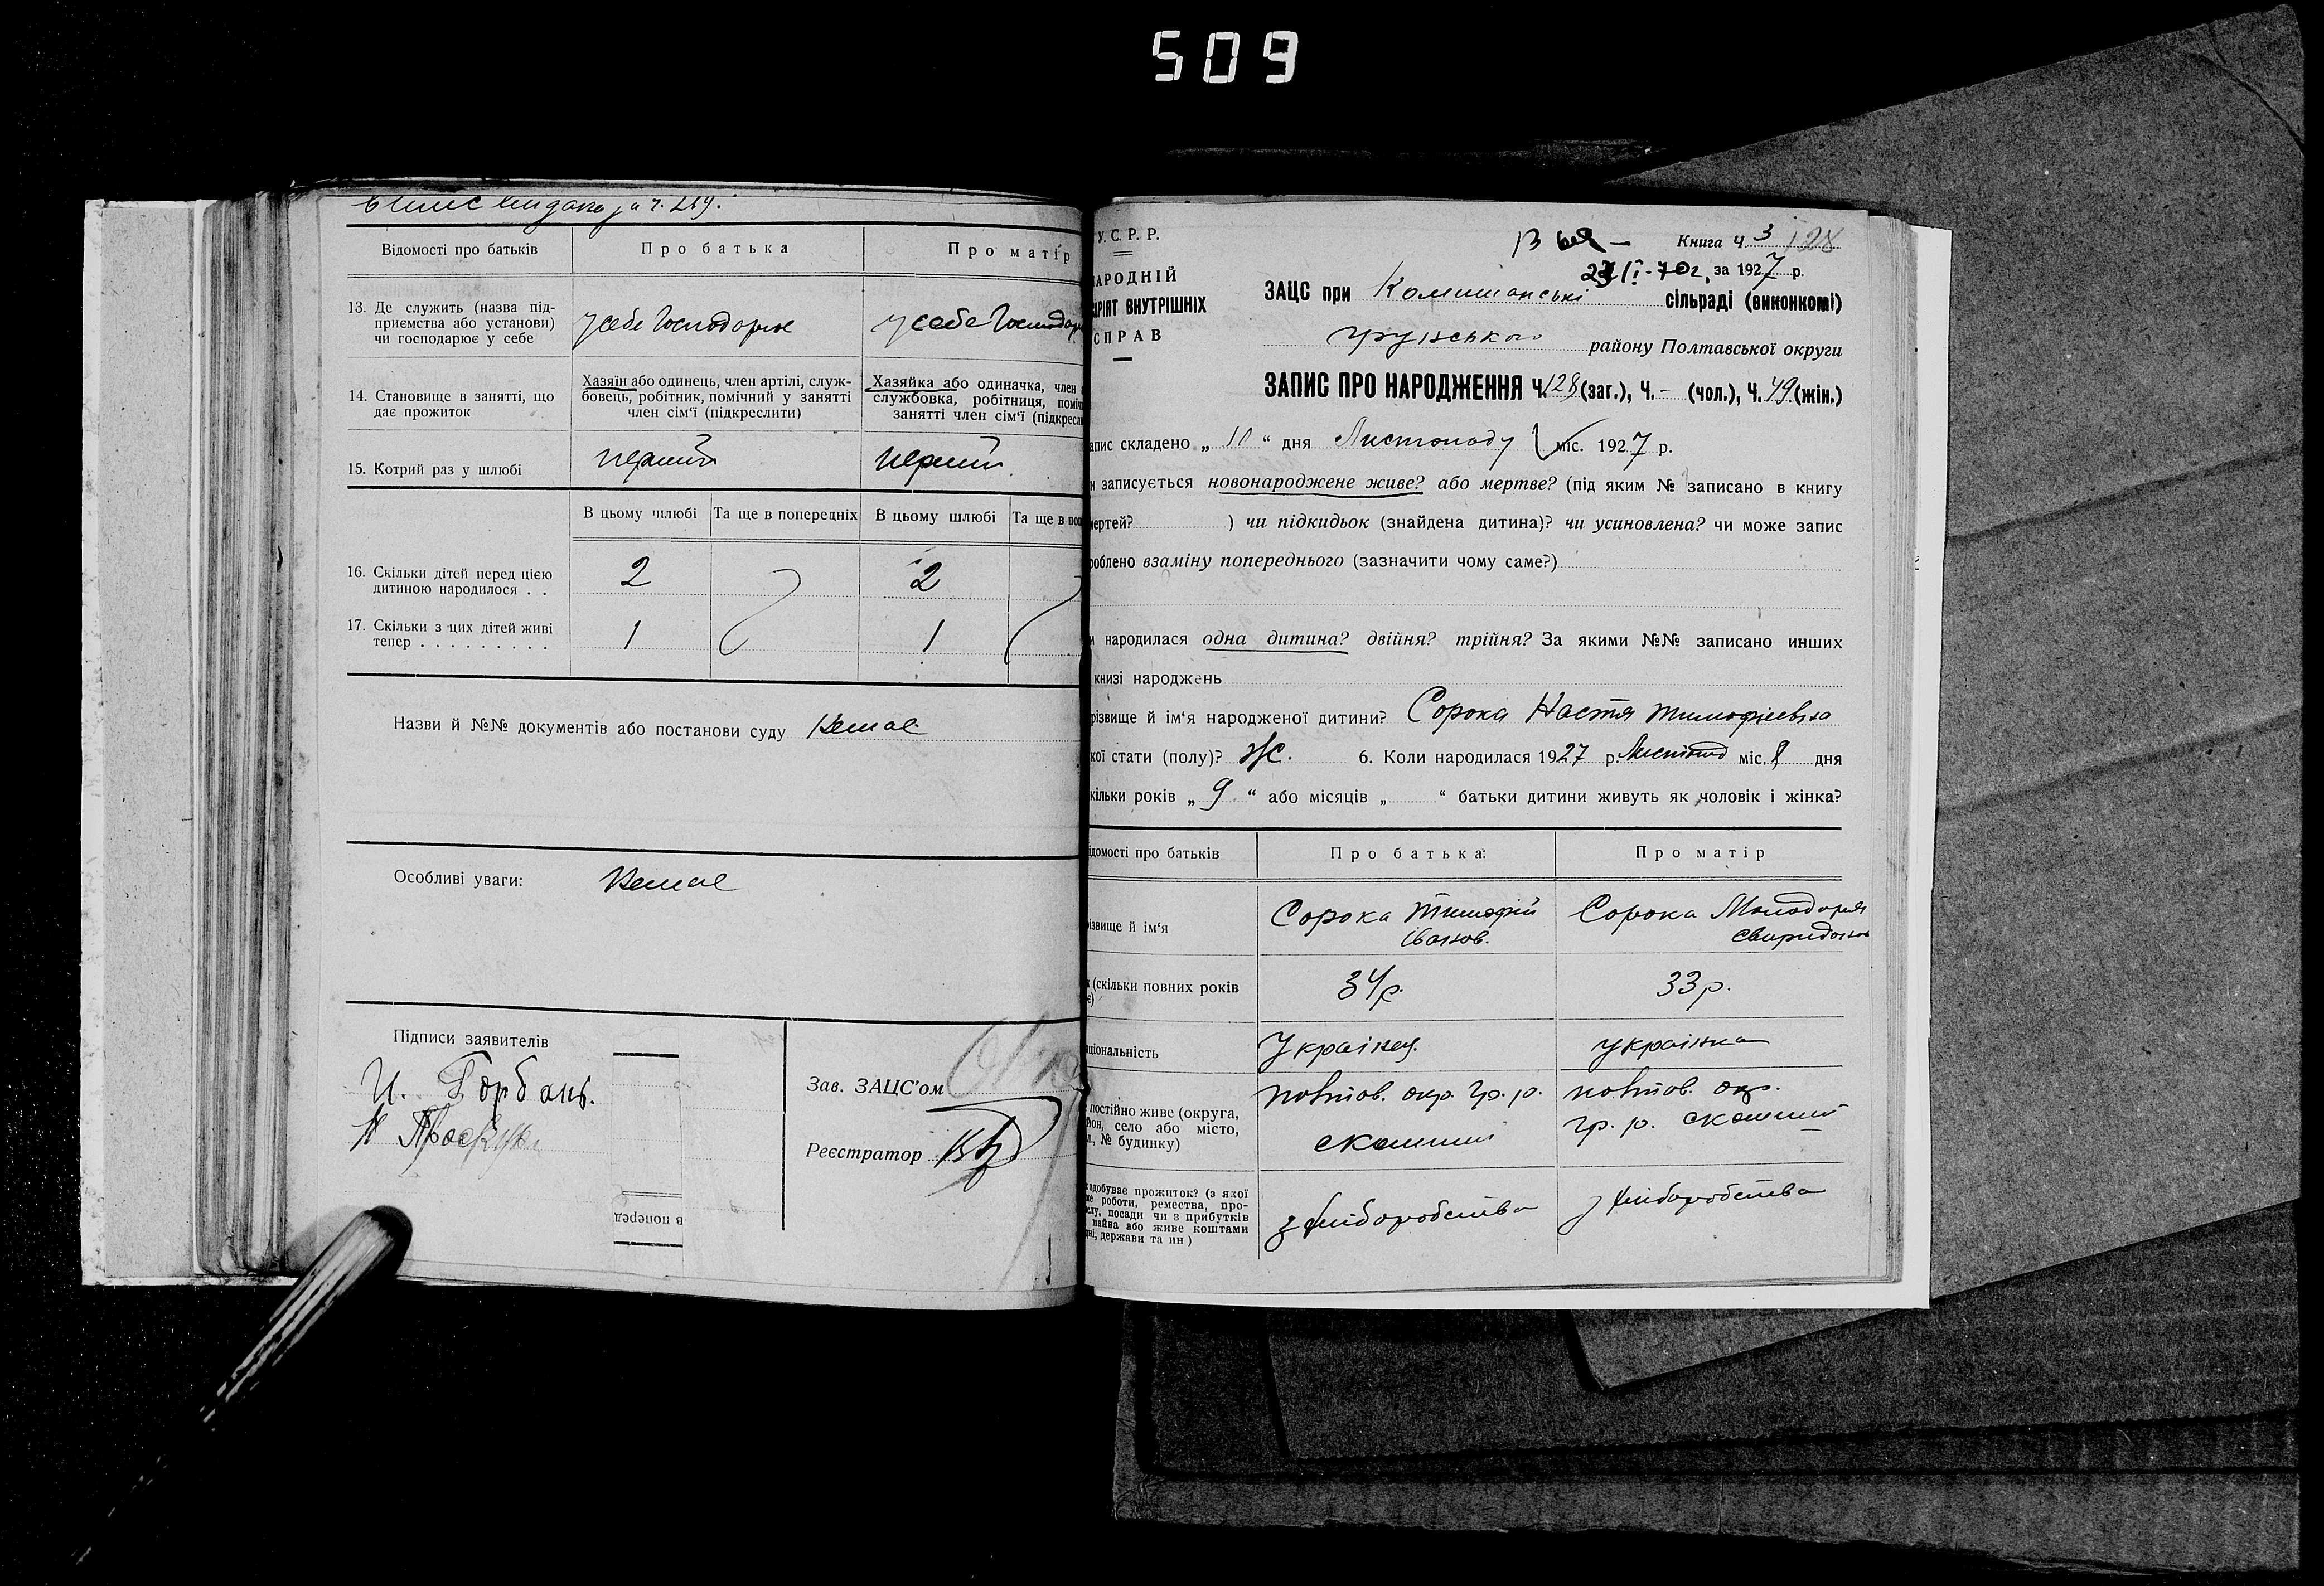 509
Відомості про батьків
Про батька
Про матір
13. Де служить (назва під-
приємства або установи)
чи господарює у себе
у себе господарює
у себе господарює
14. Становище в занятті, що
дає прожиток
Хазяїн або одинець, член артілі, служ-
бовець, робітник, помічний у занятті
член сім'ї (підкреслити)
Хазяйка або одиначка, член
службовка, робітниця, поміч
занятті член сім'ї (підкресл
15. Котрий раз у шлюбі
перший
перший
В цьому шлюбі
Та ще в попередніх
В цьому шлюбі
Та ще в поп
16. Скільки дітей перед цією
дитиною народилося . .
2
2
17. Скільки з цих дітей живі
тепер . . . . . . . . .
1
1
Назви й №№ документів або постанови суду Немає
Особливі уваги: Немає
Підписи заявителів
И. Горбань.
Зав. ЗАЦС'ом
Реєстратор
в поперед
У. С. Р. Р.
НАРОДНІЙ
АРІЯТ ВНУТРІШНІХ
СПРАВ
Книга Ч. 3 128
за 1927 р.
ЗАЦС при Комишанські сільраді (виконкомі)
Грунського району Полтавської округи
ЗАПИС ПРО НАРОДЖЕННЯ Ч. 128 (заг.), Ч. - (чол.), Ч. 49 (жін.)
апис складено „ 10 “ дня Листопаду міс. 1927 р.
и записується новонароджене живе? або мертве? (під яким № записано в книгу
мертей? ) чи підкидьок (знайдена дитина)? чи усиновлена? чи може запис
роблено взаміну попереднього (зазначити чому саме?)
и народилася одна дитина? двійня? трійня? За якими №№ записано инших
книзі народжень
різвище й ім'я народженої дитини? Сорока Настя Тимофіевна
кої стати (полу)? Ж. 6. Коли народилася 1927 р. Листопад міс. 8 дня
кільки років „ 9 “ або місяців „ “ батьки дитини живуть як чоловік і жінка?
ідомості про батьків
Про батька:
Про матір
ізвище й ім'я
Сорока Тимофій
Іванов.
Сорока
Свиридовна
к (скільки повних років
є)
34 р.
33 р.
ціональність
Українец.
Українка
е постійно живе (округа,
йон, село або місто,
л., № будинку)
полтав. окр. гр. р.
полтав. окр.
гр. р.
здобуває прожиток? (з якої
ме роботи, ремества, про-
слу, посади чи з прибутків
майна або живе коштами
дні, держави та ин)
з хліборобства
з хліборобства